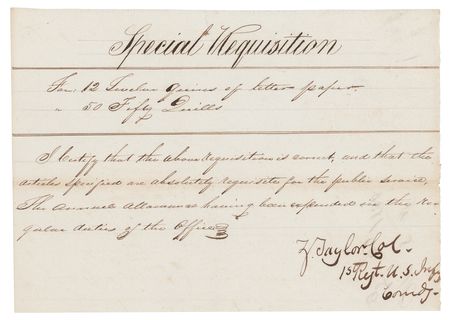 Special Requisition
For: 12 Twelve quires of letter paper.
" 50 Fifty Quills
I Certify that the above requisition is correct, and that the
articles specified are absolutely requisite for the public service,
The annual allowance having been expended in the re-
gular duties of the Office
Z. Taylor. Col.
1st Regt. U.S. Infy
Comdg.